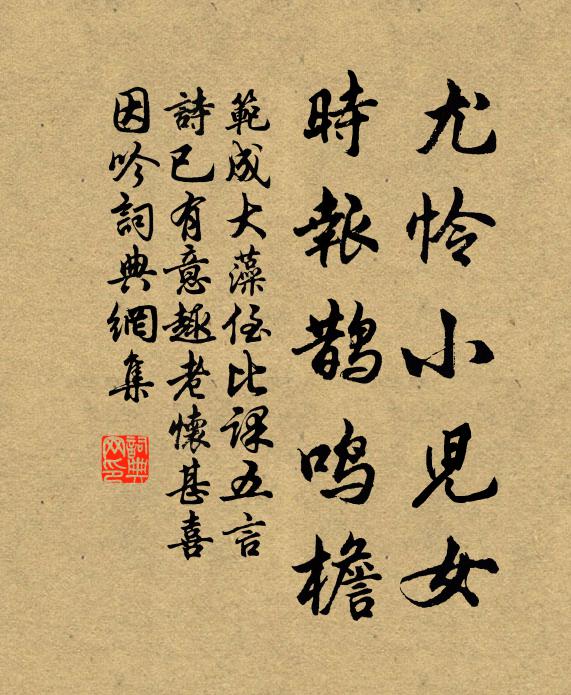 尤怜小兒女
時報鵲鳴檐
範成大藻侄比課五言
詩已有意趣老懷甚喜
因吟詞典網集
詞典网印